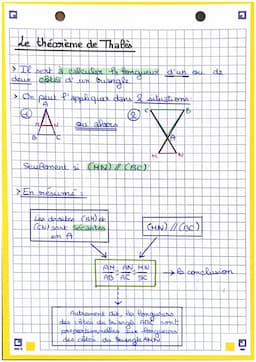 Le théorème de Thalès
> Il sert à calculer la longueur d'un ou de
deux côtés d'un triangle
> On peut l'appliquer dans 2 situations
1 A
M N
B C
ou alors
2 C B
A
M N
Seulement si (MN) // (BC)
> En résumé :
Les droites (BM) et
(CN) sont sécantes
en A
(MN) // (BC)
AM = AN = MN
AB AC BC
→ la conclusion
Autrement dit, les longueurs
des côtés du triangle ABC sont
proportionnelles aux longueurs
des côtés du triangle AMN